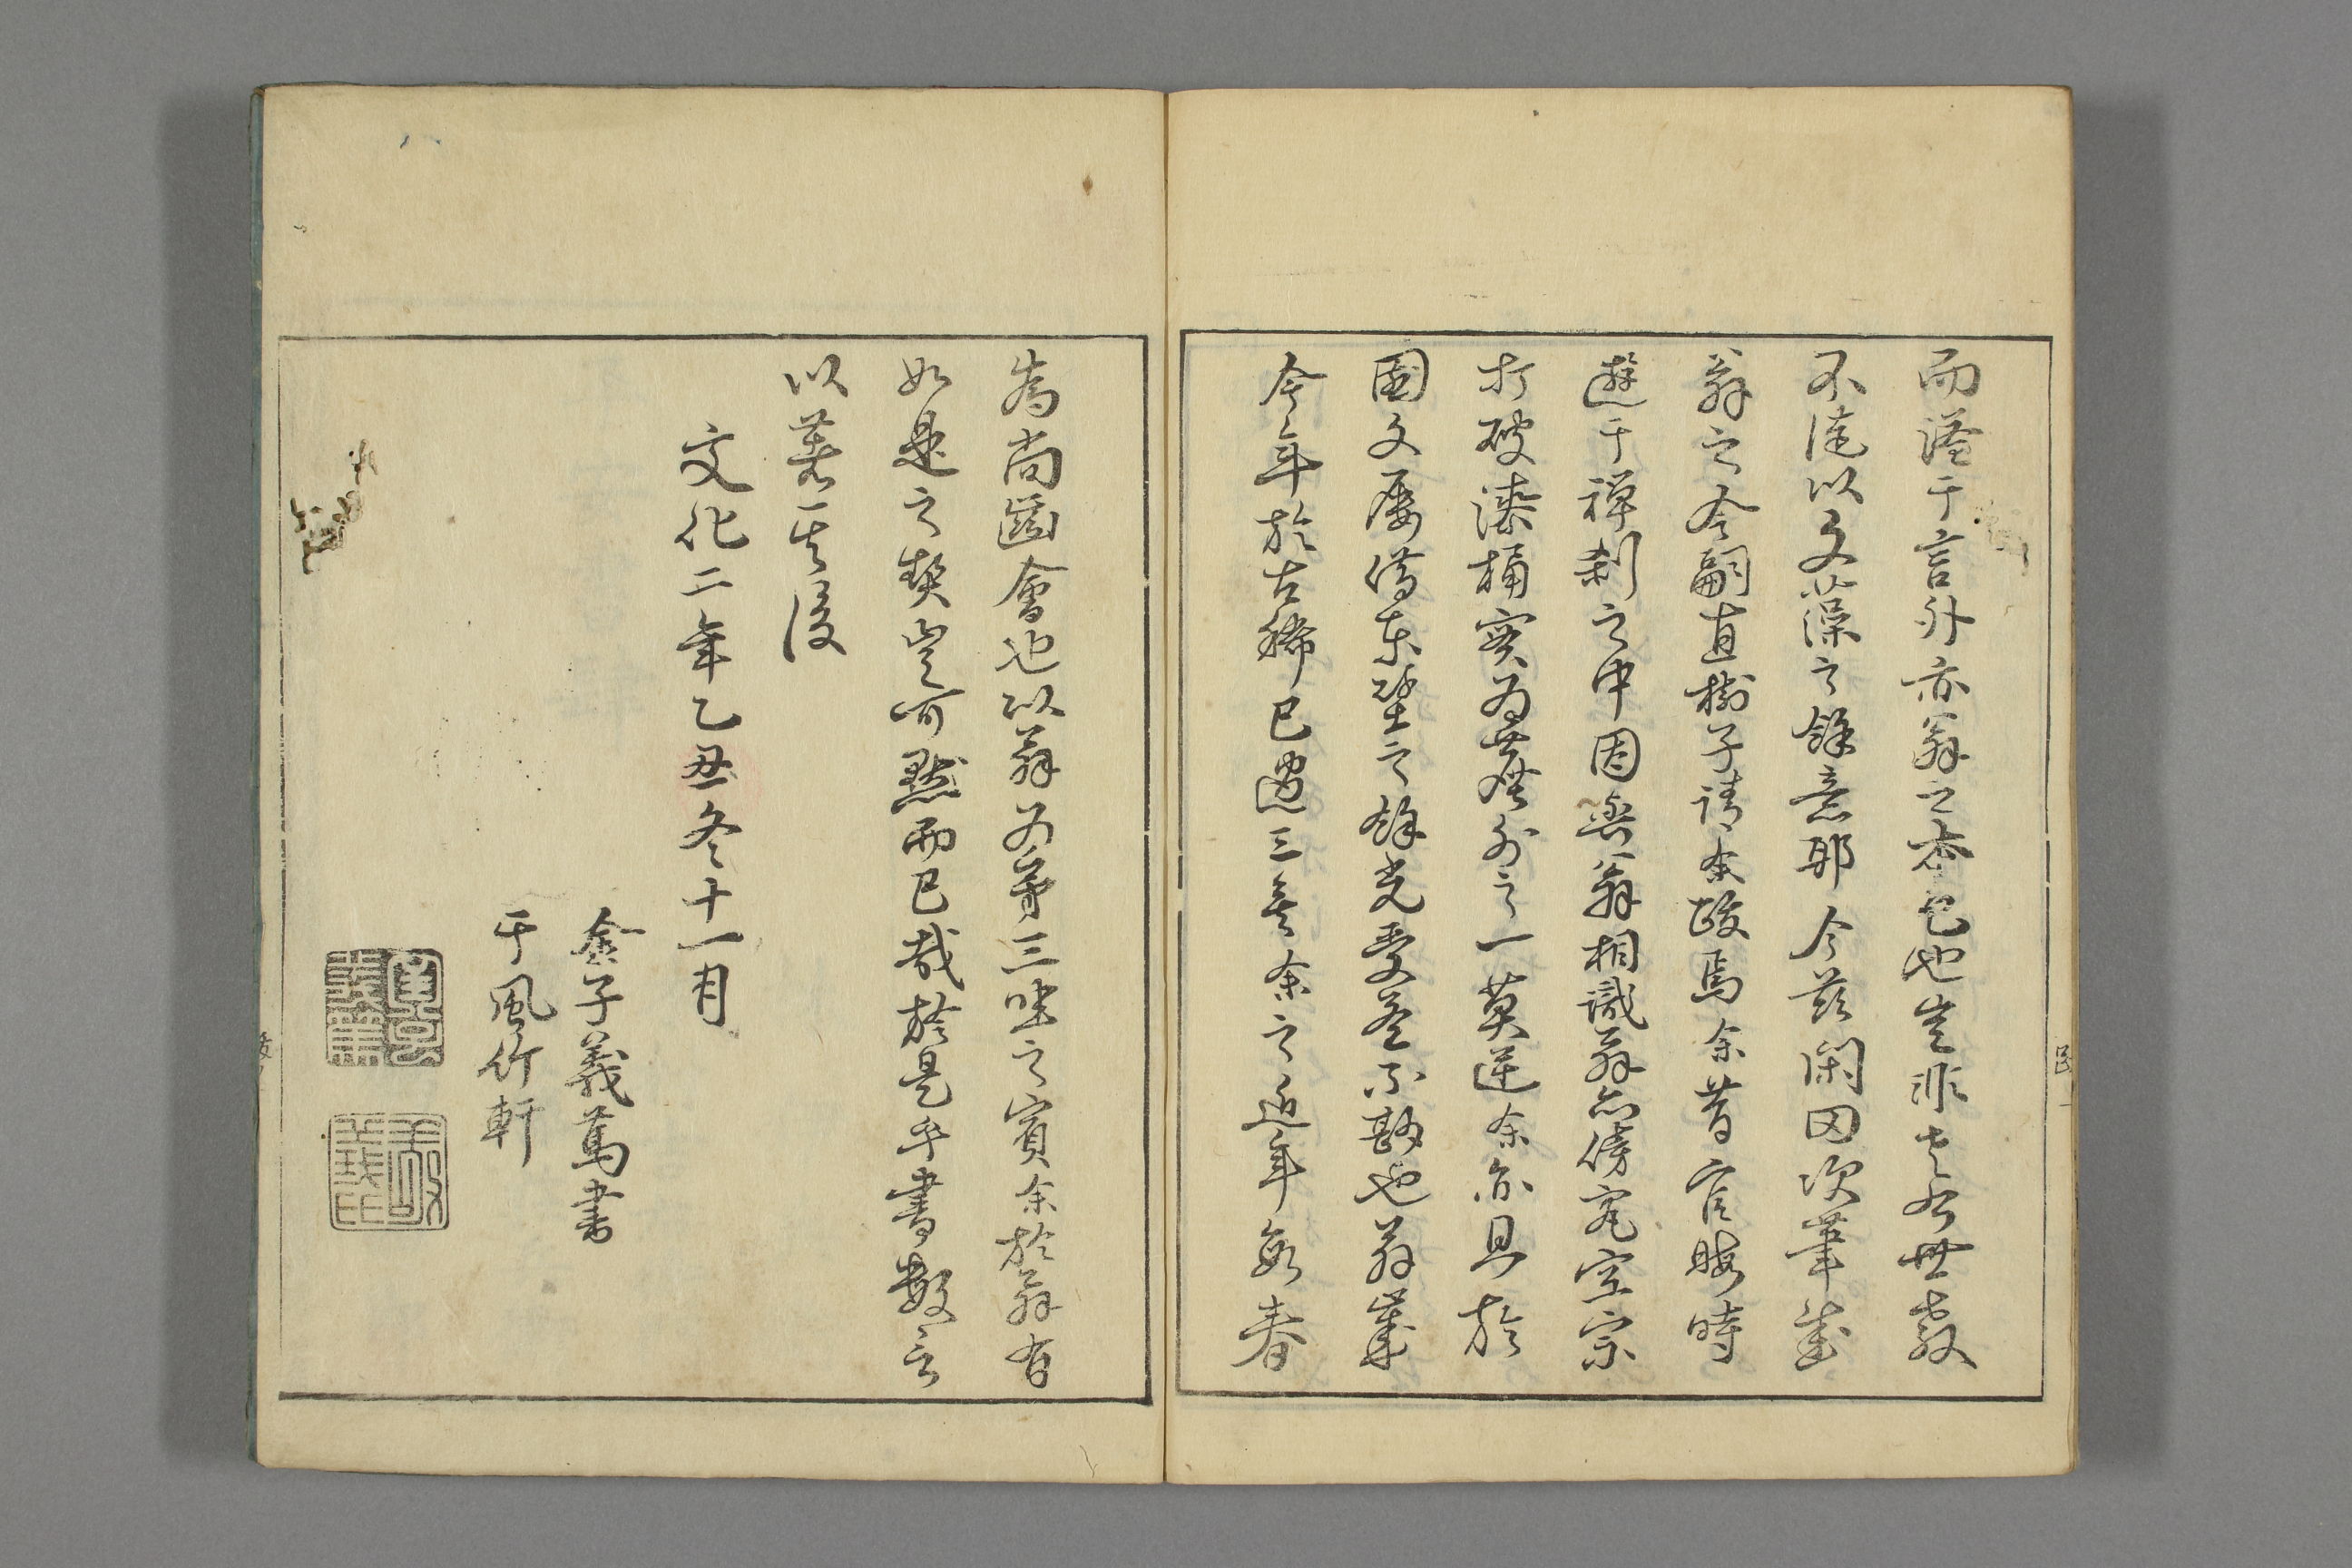 而溢于言外亦翁之本色也豈非老台無教
不從以文藻之餘意耶今茲閑因次筆
翁之令嗣直樹子請余跋焉余昔官暇時
遊于禪刹之中因與翁相識翁亦傍究空宗
打破漆桶實為塵外之一莫逆余亦且於
國文屢借東壁之餘光受益不尠也翁
今年於古稀已過三矣余之近年每春
為尚齒會也以翁為第三坐之賓余於翁有
如是之契豈可默而已哉於是乎書數言
以著其後
文化二年乙丑冬十一月
金子義篤書
于風竹軒